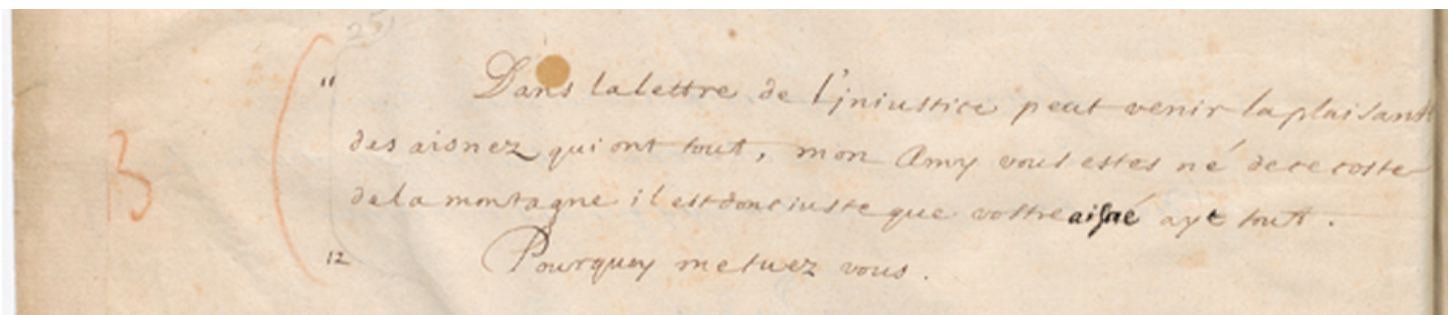 25
" Dans la lettre de l'jniustice peut venir la plaisant
des aisnez qui ont tout, mon Amy vous estes né de ce coste
de la montagne il est donc iuste que vostre aisné ayt tout.
12 Pourquoy me tuez vous.
B